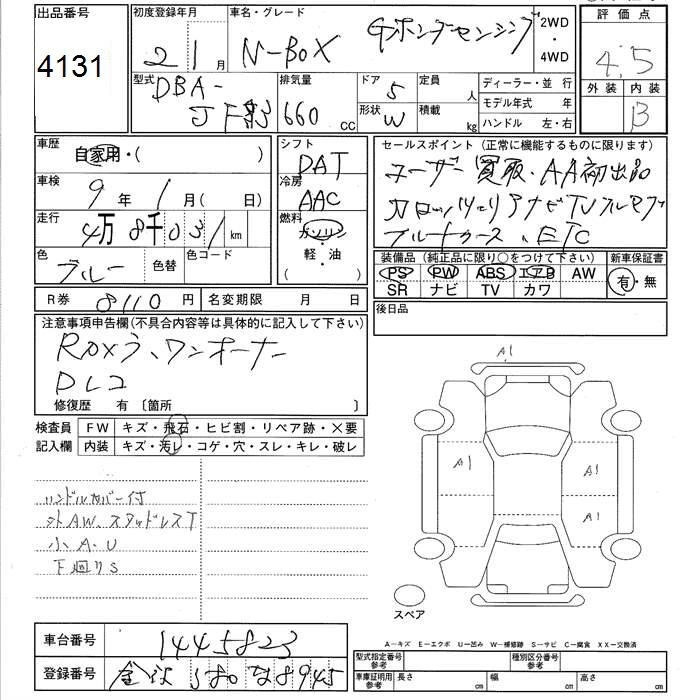 出品番号
4131
初度登録年月
2 1 月
車名・グレード
N-BOX Gホンダセンシング
2WD
・
4WD
評価点
4.5
外装 内装
B
型式
DBA-
JF3
排気量
660 CC
ドア
5
形状
W
定員 人
積載 kg
ディーラー・並 行
モデル年式 年
ハンドル 左・右
車歴
自家用・( )
車検
9 年 1 月( 日)
走行
4万 8千 031 km
色
ブルー
色替
色コード
シフト
DAT
冷房
AAC
燃料
ガソリン
・
軽・油
( )
セールスポイント(正常に機能するものに限ります)
ユーザー買取・AA初出品
ナビTVフルセグ
ETC
装備品(純正品に限り○をつけて下さい)
PS PW ABS エアB AW
SR ナビ TV カワ
新車保証書
有・無
R券 8110 円
名変期限 月 日
後日品
注意事項申告欄(不具合内容等は具体的に記入して下さい)
ワンオーナー
Dレコ
修復歴 有 〔箇所 〕
検査員
記入欄
FW キズ・飛石・ヒビ割・リペア跡・×要
内装 キズ・汚レ・コゲ・穴・スレ・キレ・破レ
ハンドルカバー付
外AW、スタッドレスT
小A・U
下廻りS
A1
A1
A1
A1
スペア
車台番号 1445823
登録番号 580 8945
A−キズ E−エクボ U−凹み W−補修跡 S−サビ C−腐食 XX−交換済
型式指定番号
参考
種別区分番号
参考
車庫証明用
参考
長さ cm
幅 cm
高さ cm